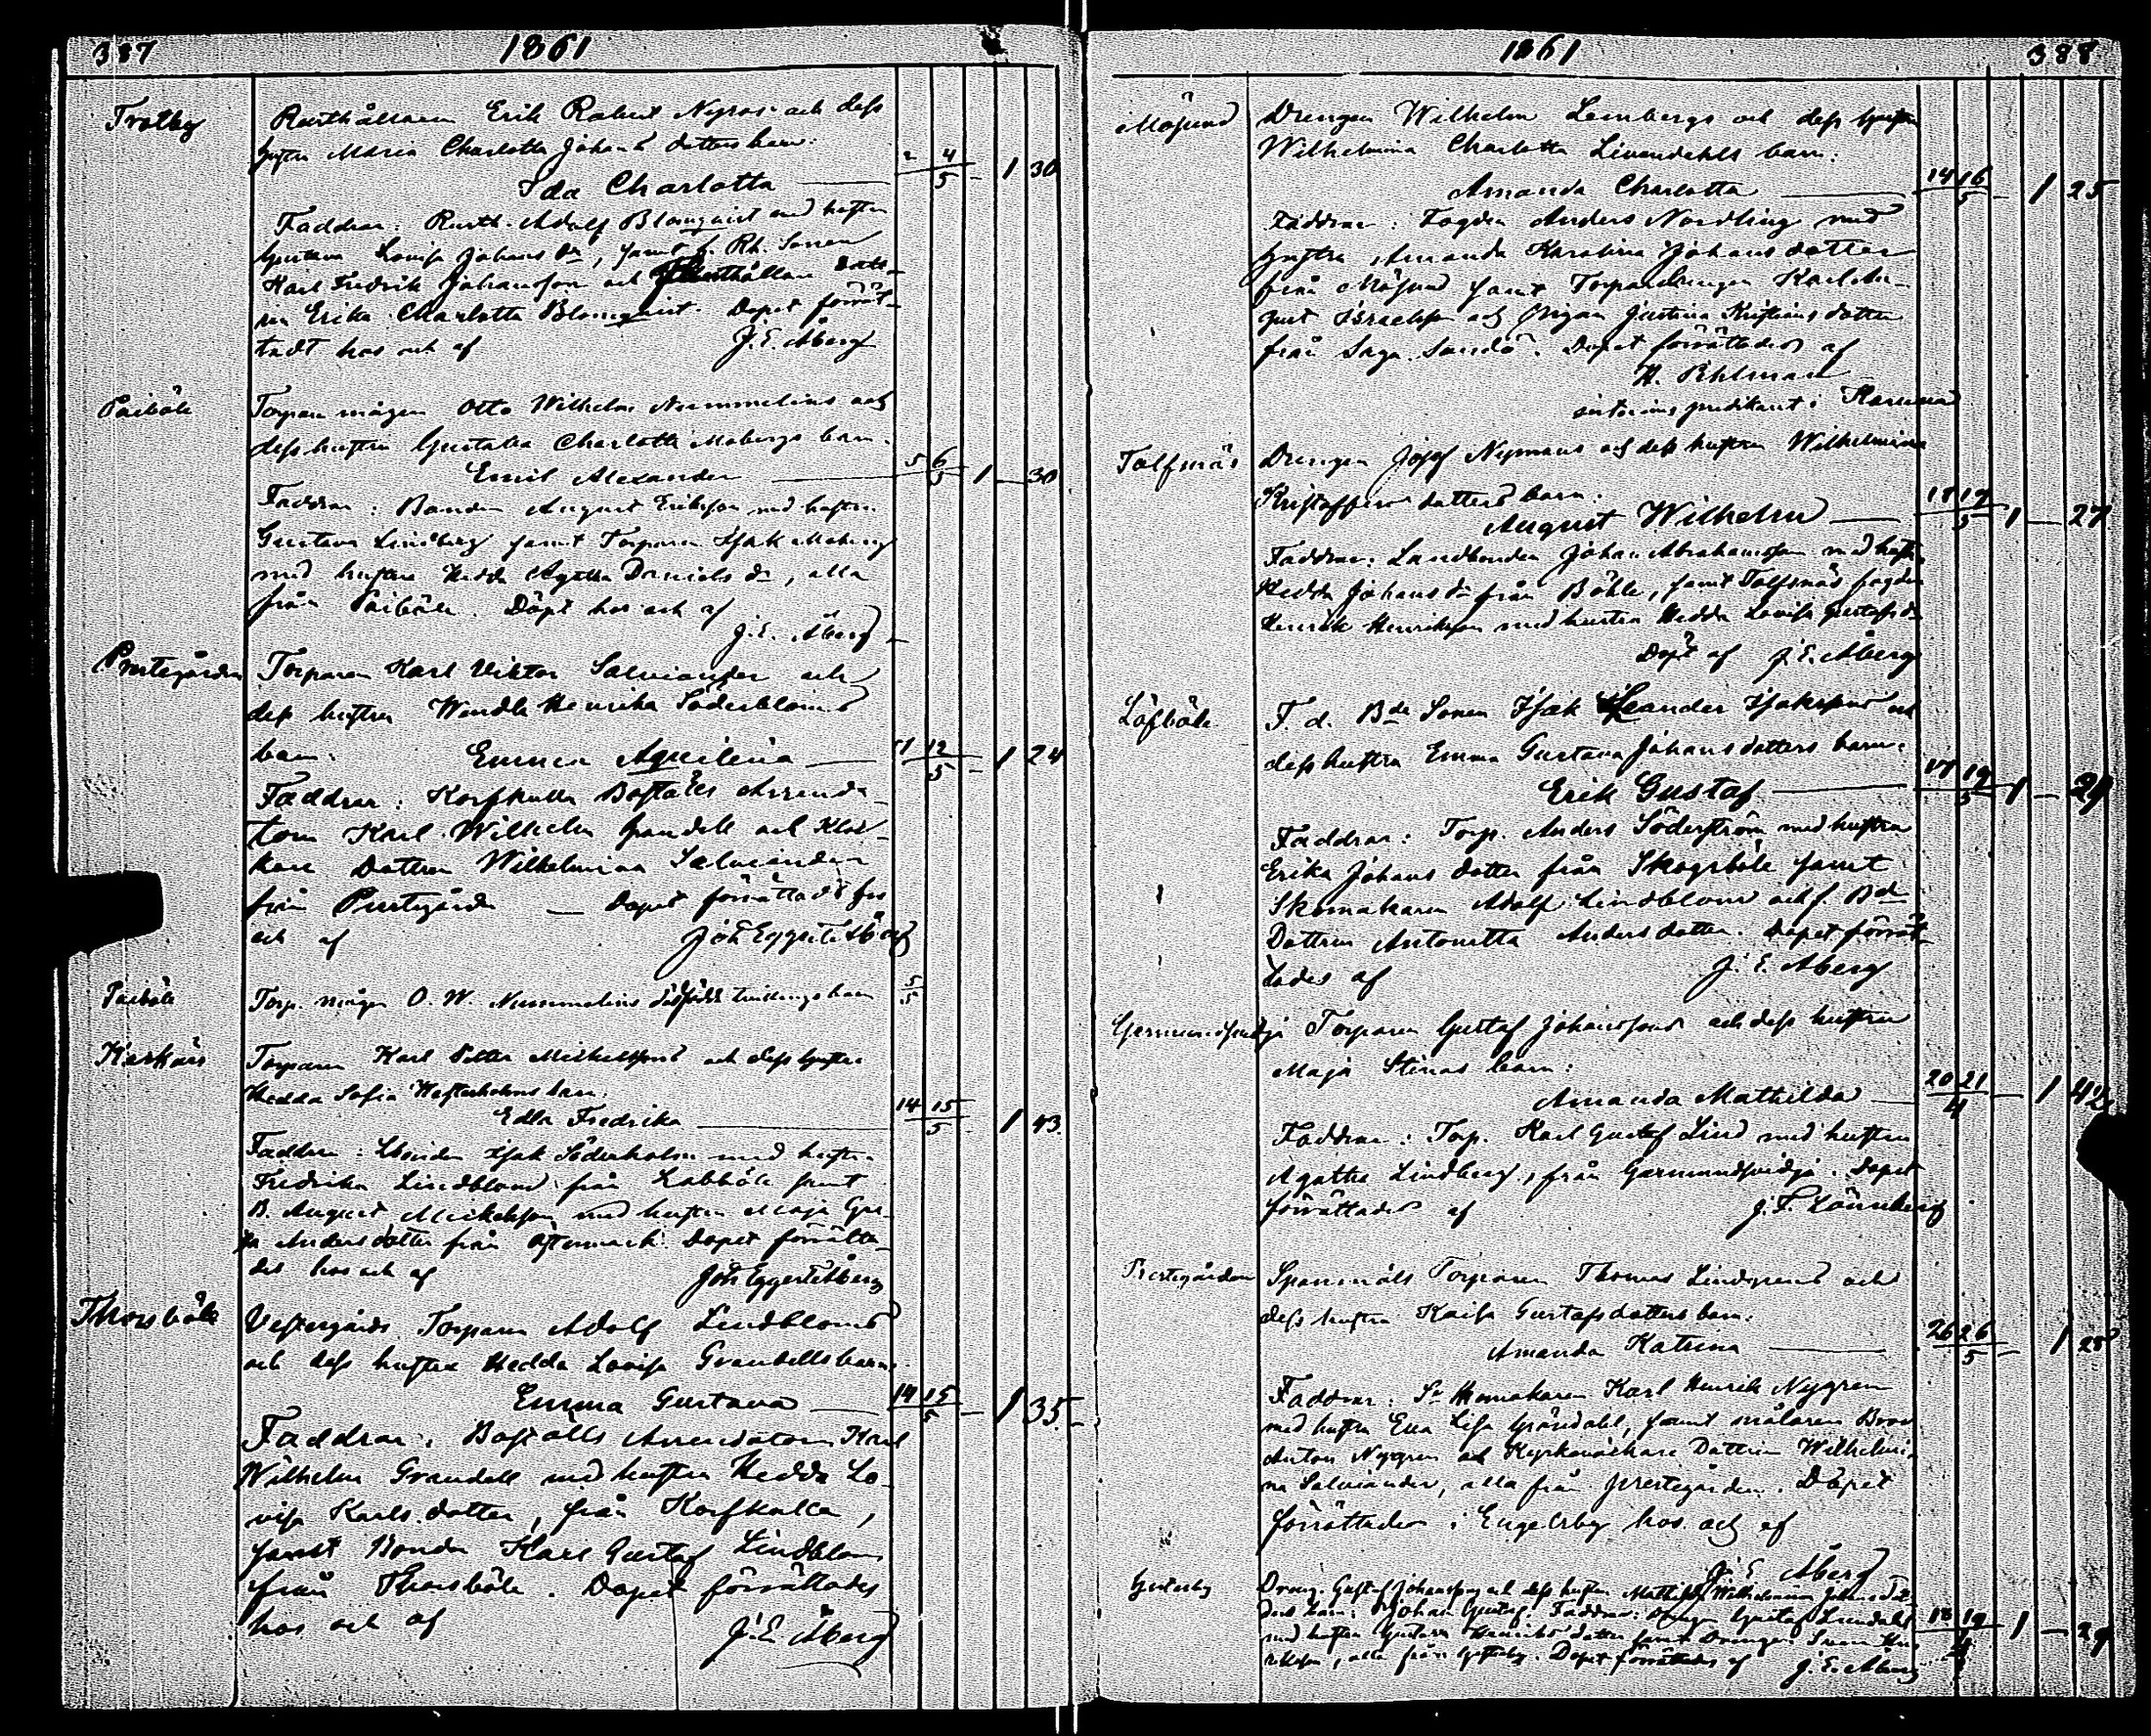 387 1861
Trotby Rusthållaren Erik Robert Nyroos och dess
hustru Maria Charlotta Johans dotters barn:
Ida Charlotta 2 4/5 - 1 30
Faddrar: Rusth. Adolf Blomqvist med hustru
Gustava Lovisa Johans dr, samt f. Rh. Sonen
Karl Fredrik Johansson och Rusthållare dott-
ren Erika Charlotta Blomqvist. Dopet förrät-
tadt hos och af J. E. Åberg
Paiböle Torpare mågen Otto Wilhelm Nummelins och
dess hustru Gustava Charlotta Mobergs barn.
Emil Alexander 5 6/5 1 - 30
Faddrar: Bonden August Eriksson med hustru
Gustava Lindberg samt Torparen Isak Moberg
med hustru Hedda Agatha Daniels dr, alla
från Paiböle. Döpt hos och af
J. E. Åberg
Prestegården Torparen Karl Viktor Salviander och
dess hustru Wendla Henrika Söderbloms
barn: Emma Aquilina 11 12/5 - 1 24
Faddrar: Korskulla Boställs Arrenda-
torn Karl Wilhelm Grandell och Kloc-
kare Dottren Wilhelmina Salviander
från Prestegården — Dopet förrättadt hos
och af Joh Eggert Åberg
Paiböle Torp. mågen O. W. Nummelins dödfödda tvillingsbarn 5/5
Karlnäs Torparen Karl Petter Mickelssons och dess hustru
Hedda Sofia Westerholms barn.
Edla Fredrika 14 15/5 - 1 43
Faddrar: Bonden Isak Söderholm med hustru
Fredrika Lindblom från Labböle samt
B. August Mickelsson med hustru Maja Gre-
ta Anders dotter från Östermark. Dopet förrätta-
des hos och af Joh Eggert Åberg
Thorsböle Vestergårds Torparen Adolf Lindbloms
och dess hustru Hedda Lovisa Grandells barn.
Emma Gustava 14 15/5 - 1 35
Faddrar: Boställs Arrendatorn Karl
Wilhelm Grandell med hustru Hedda Lo-
visa Karls dotter, från Korskulla,
samt Bonden Karl Gustaf Lindblom
från Thorsböle. Dopet förrättades
hos och af J. E. Åberg
1861 388
Mösund Drengen Wilhelm Lembergs och dess hustru
Wilhelmina Charlotta Linendahls barn:
Amanda Charlotta 14 16/5 - 1 25
Faddrar: Fogden Anders Nordling med
hustru Amanda Karolina Johans dotter
från Mösund samt Torparedrengen Karl Au-
gust Israelsson och Pigan Justina Kristians dotter
från Saga Sandö. Dopet förrättades af
H. Pihlman
interims predikant i Karuna
Tolfsnäs Drengen Josef Nymans och dess hustru Wilhelmina
Kristoffers dotters barn.
August Wilhelm 18 19/5 1 - 27
Faddrar: Landbonden Johan Abrahamsson med hustru
Hedda Johans dr från Böhle, samt Tolfsnäs fogden
Henrik Henriksson med hustru Hedda Lovisa Gustafs dr
Döpt af J. E. Åberg
Löfböle F. d. Bde Sonen Isak Leander Isakssons och
dess hustru Emma Gustava Johans dotters barn:
Erik Gustaf 17 19/5 1 - 21
Faddrar: Torp. Anders Söderström med hustru
Erika Johans dotter från Skogsböle samt
Skomakaren Adolf Lindblom och f. Bde
Dottren Antonetta Anders dotter. Dopet förrät-
tades af J. E. Åberg
Germundsvidja Torparen Gustaf Johanssons och dess hustru
Maja Stinas barn:
Amanda Mathilda 20 21/4 - 1 42
Faddrar: Torp. Karl Gustaf Lind med hustru
Agatha Lindberg, från Germundsvidja. Dopet
förrättades af J. F. Lönnberg
Prestegården Spannmåls Torparen Thomas Lindgrens och
dess hustru Kaisa Gustafs dotters barn:
Amanda Katrina 26 26/5 - 1 28
Faddrar: Skomakaren Karl Henrik Nygren
med hustru Eva Lisa Gröndahl, samt målaren Bror
Anton Nygren och Kyrkoväktare Dottren Wilhelmi-
na Salviander, alla från Prestegården. Dopet
förrättades i Engelsby hos och af
J. E. Åberg
Gesterby Dreng. Gustaf Johanssons och dess hustru Mathilda Wilhelmina Johans dot-
ters barn: Johan Gustaf. Faddrar: drengen Gustaf Lundahl 18 19/4 1 - 29
med hustru Gustava Henriks dotter samt Drengen
alla från Gesterby. Dopet förrättades af J. E. Åberg